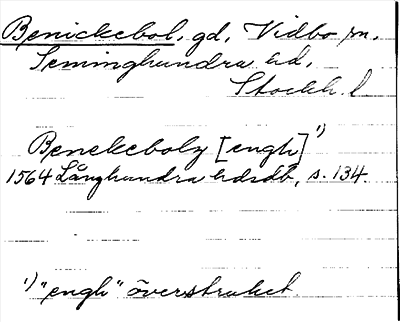 Benickebol, gd, Vidbo sn,
Seminghundra hd,
Stockh. l
Benekeboly [engh] ¹)
1564 Långhundra hdsdb, s. 134.
¹) "engh" överstruket